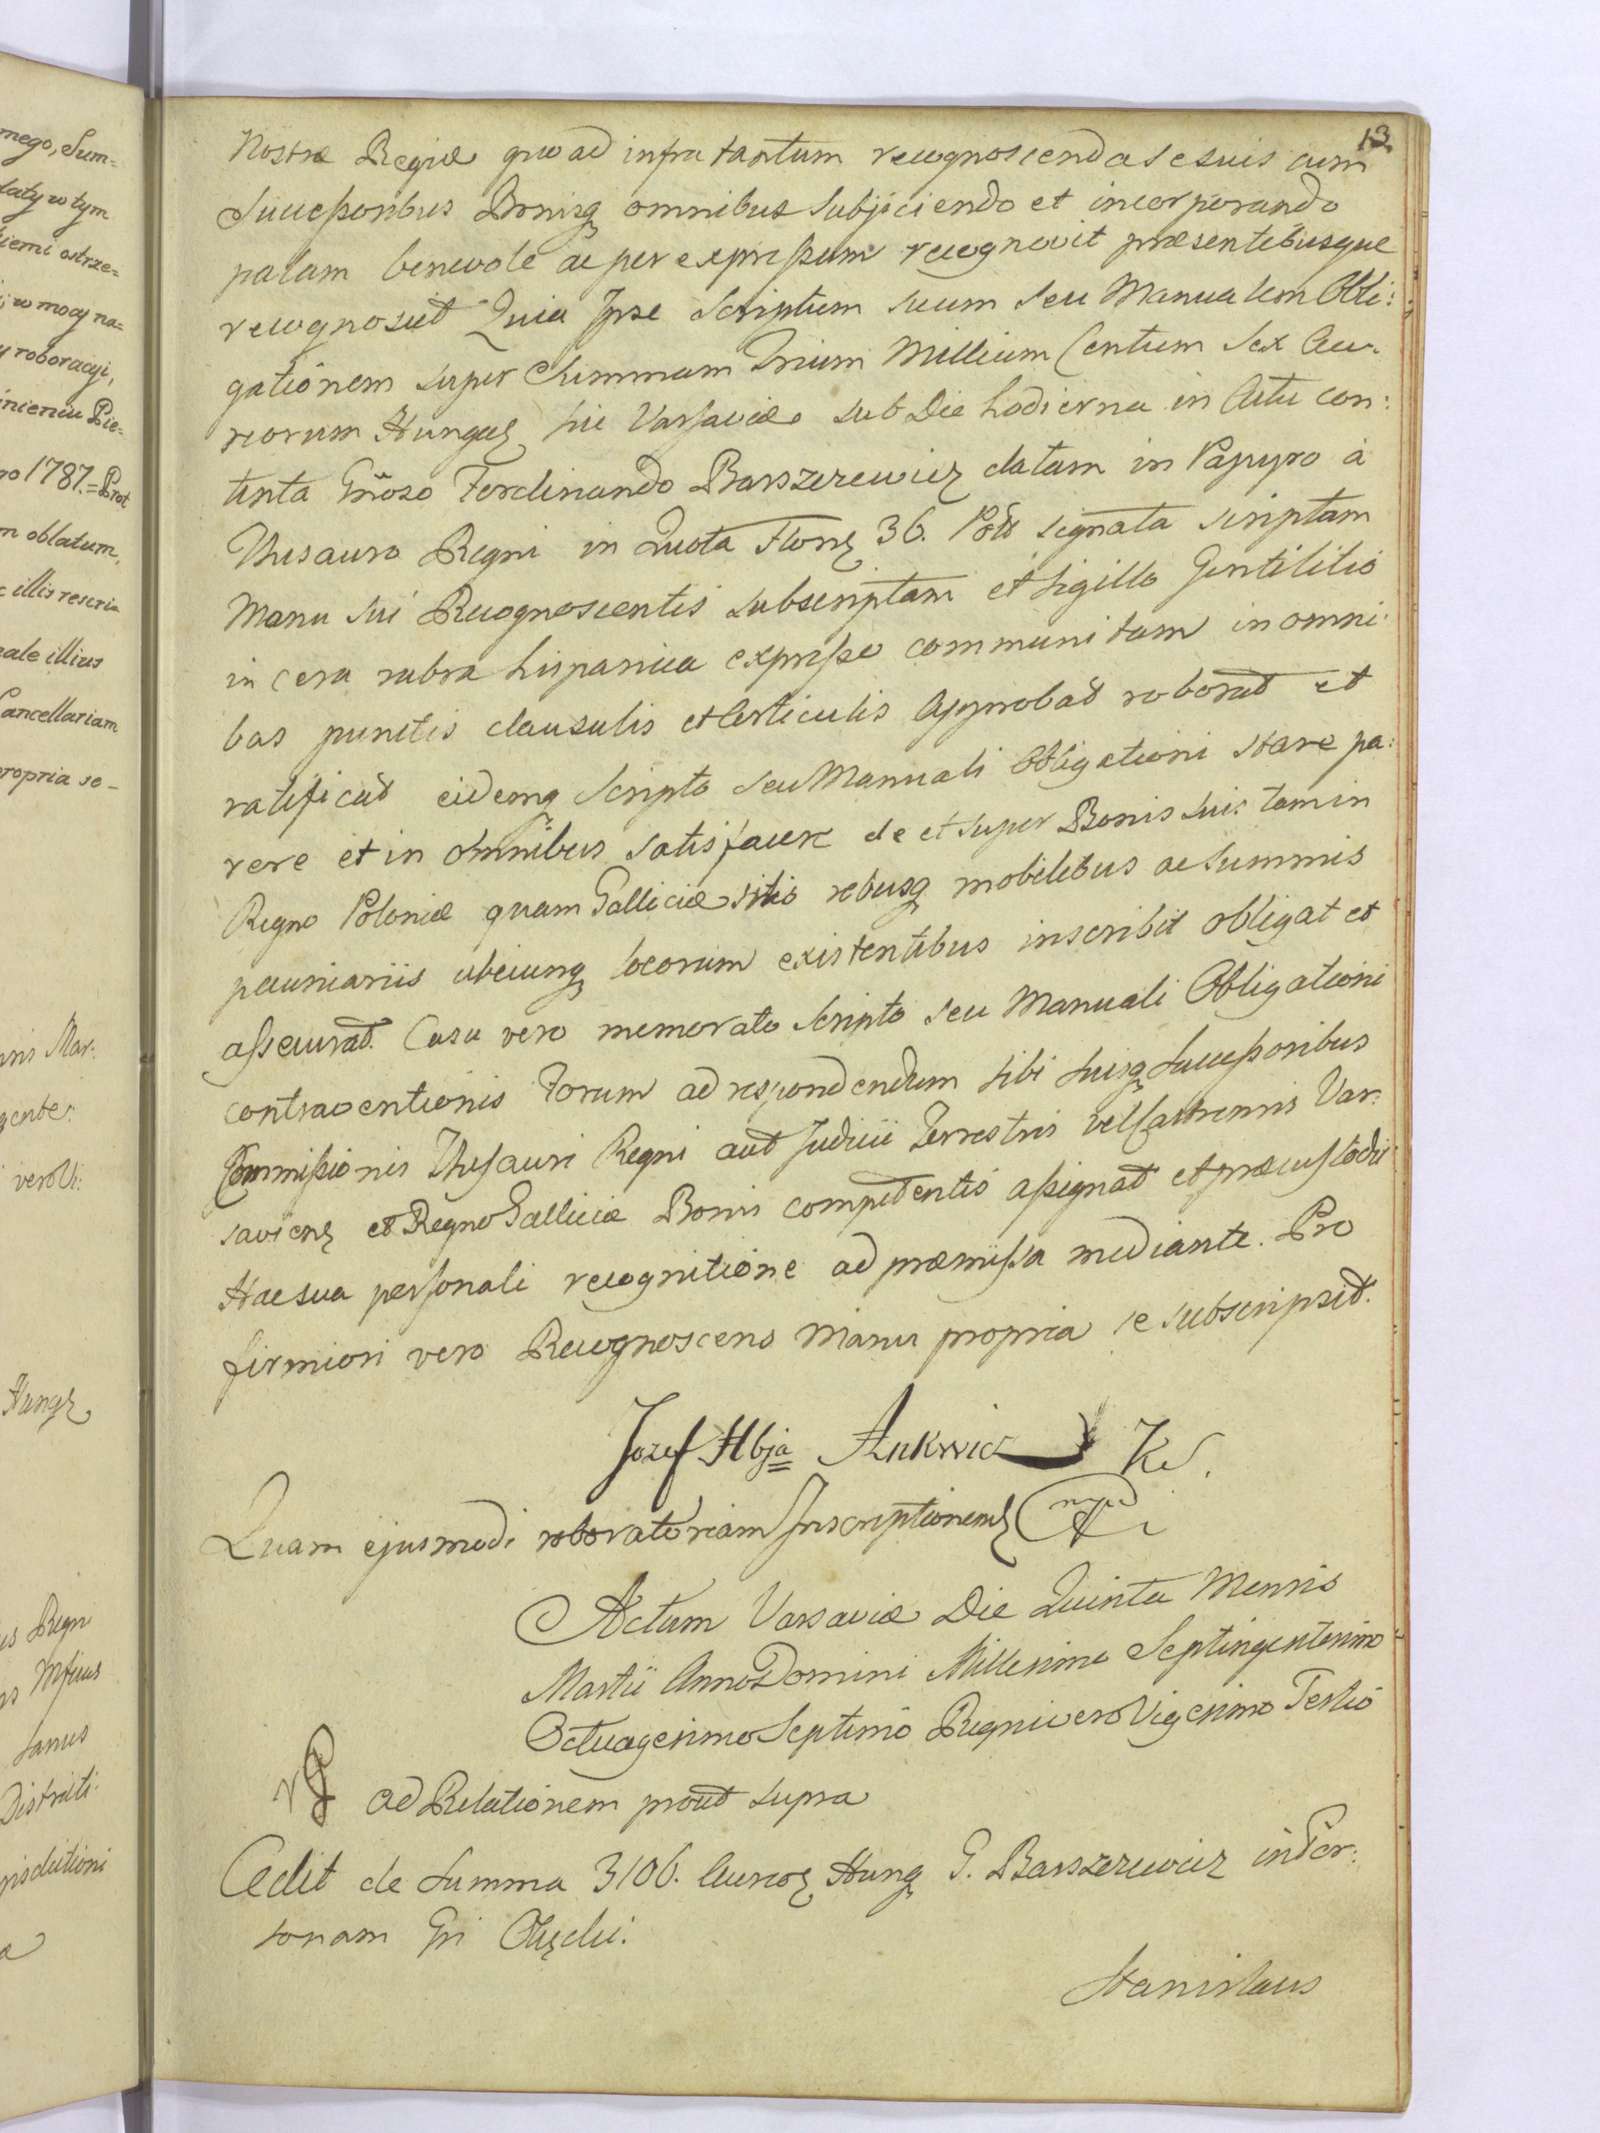 mego, Sum=
łaty w tym
iemi ostrze=
i, w mocy na=
y roboracyi,
inieniu Pie=
go 1787.=Prot
m oblatum,
c illis rescri
eale illius
Cancellariam
propria se-
nnis Mar:
gente:
vero Vi:
Hungz
is Regni
Janus
Districti
risdictioni
13.
Nostræ Regiæ quo ad infra tantum recognoscenda se suis cum
Successoribus Bonisq omnibus subjiciendo et incorporando
palam benevole ac per expressum recognovit præsentibusque
recognoscit Quia Ipse Scriptum suum seu Manualem Obli:
gationem super Summam Trium Millium Centum Sex Au-
reorum Hungz hic Varsaviæ sub Die hodierna in Actu con:
tenta Gnoso Ferdinando Barszczewicz datam in Papyro à
Thesauro Regni in Quota Florz 36. Poll signata scriptam
Manu sui Recognoscentis subscriptam et Sigillo Gentilitio
in Cera rubra hispanica expresso communitam in omni:
bus punctis clausulis et Articulis Approbat roborat et
ratificat eidemq Scripto seu Manuali Obligationi stare pa:
rere et in omnibus satisfacere de et super Bonis suis tam in
Regno Poloniæ quam Galliciæ sitis rebusq mobilibus ac Summis
pecuniariis ubicunq locorum existentibus inscribit obligat et
assecurat. Casu vero memorato Scripto seu Manuali Obligationi
contraventionis Forum ad respondendum sibi suisq Successoribus
Commissionis Thesauri Regni aut Judicii Terrestris vel Castrensis Var:
savienz et Regno Galliciæ Bonis competentis assignat et præcustodit
Hac sua personali recognitione ad præmissa mediante. Pro
firmiori vero Recognoscens Manu propria se subscripsit.
Jozef Hbja Ankwicz KS.
Quam ejusmodi roboratoriam Inscriptionemz
Actum Varsaviæ Die Quinta Mensis
Martii Anno Domini Millesimo Septingentesimo
Octuagesimo Septimo Regni vero Vigesimo Tertio
ad Relationem prout supra
Cedit de Summa 3106. Aureoz Hung G. Barszczewicz in Per:
sonam Gri
Stanislaus